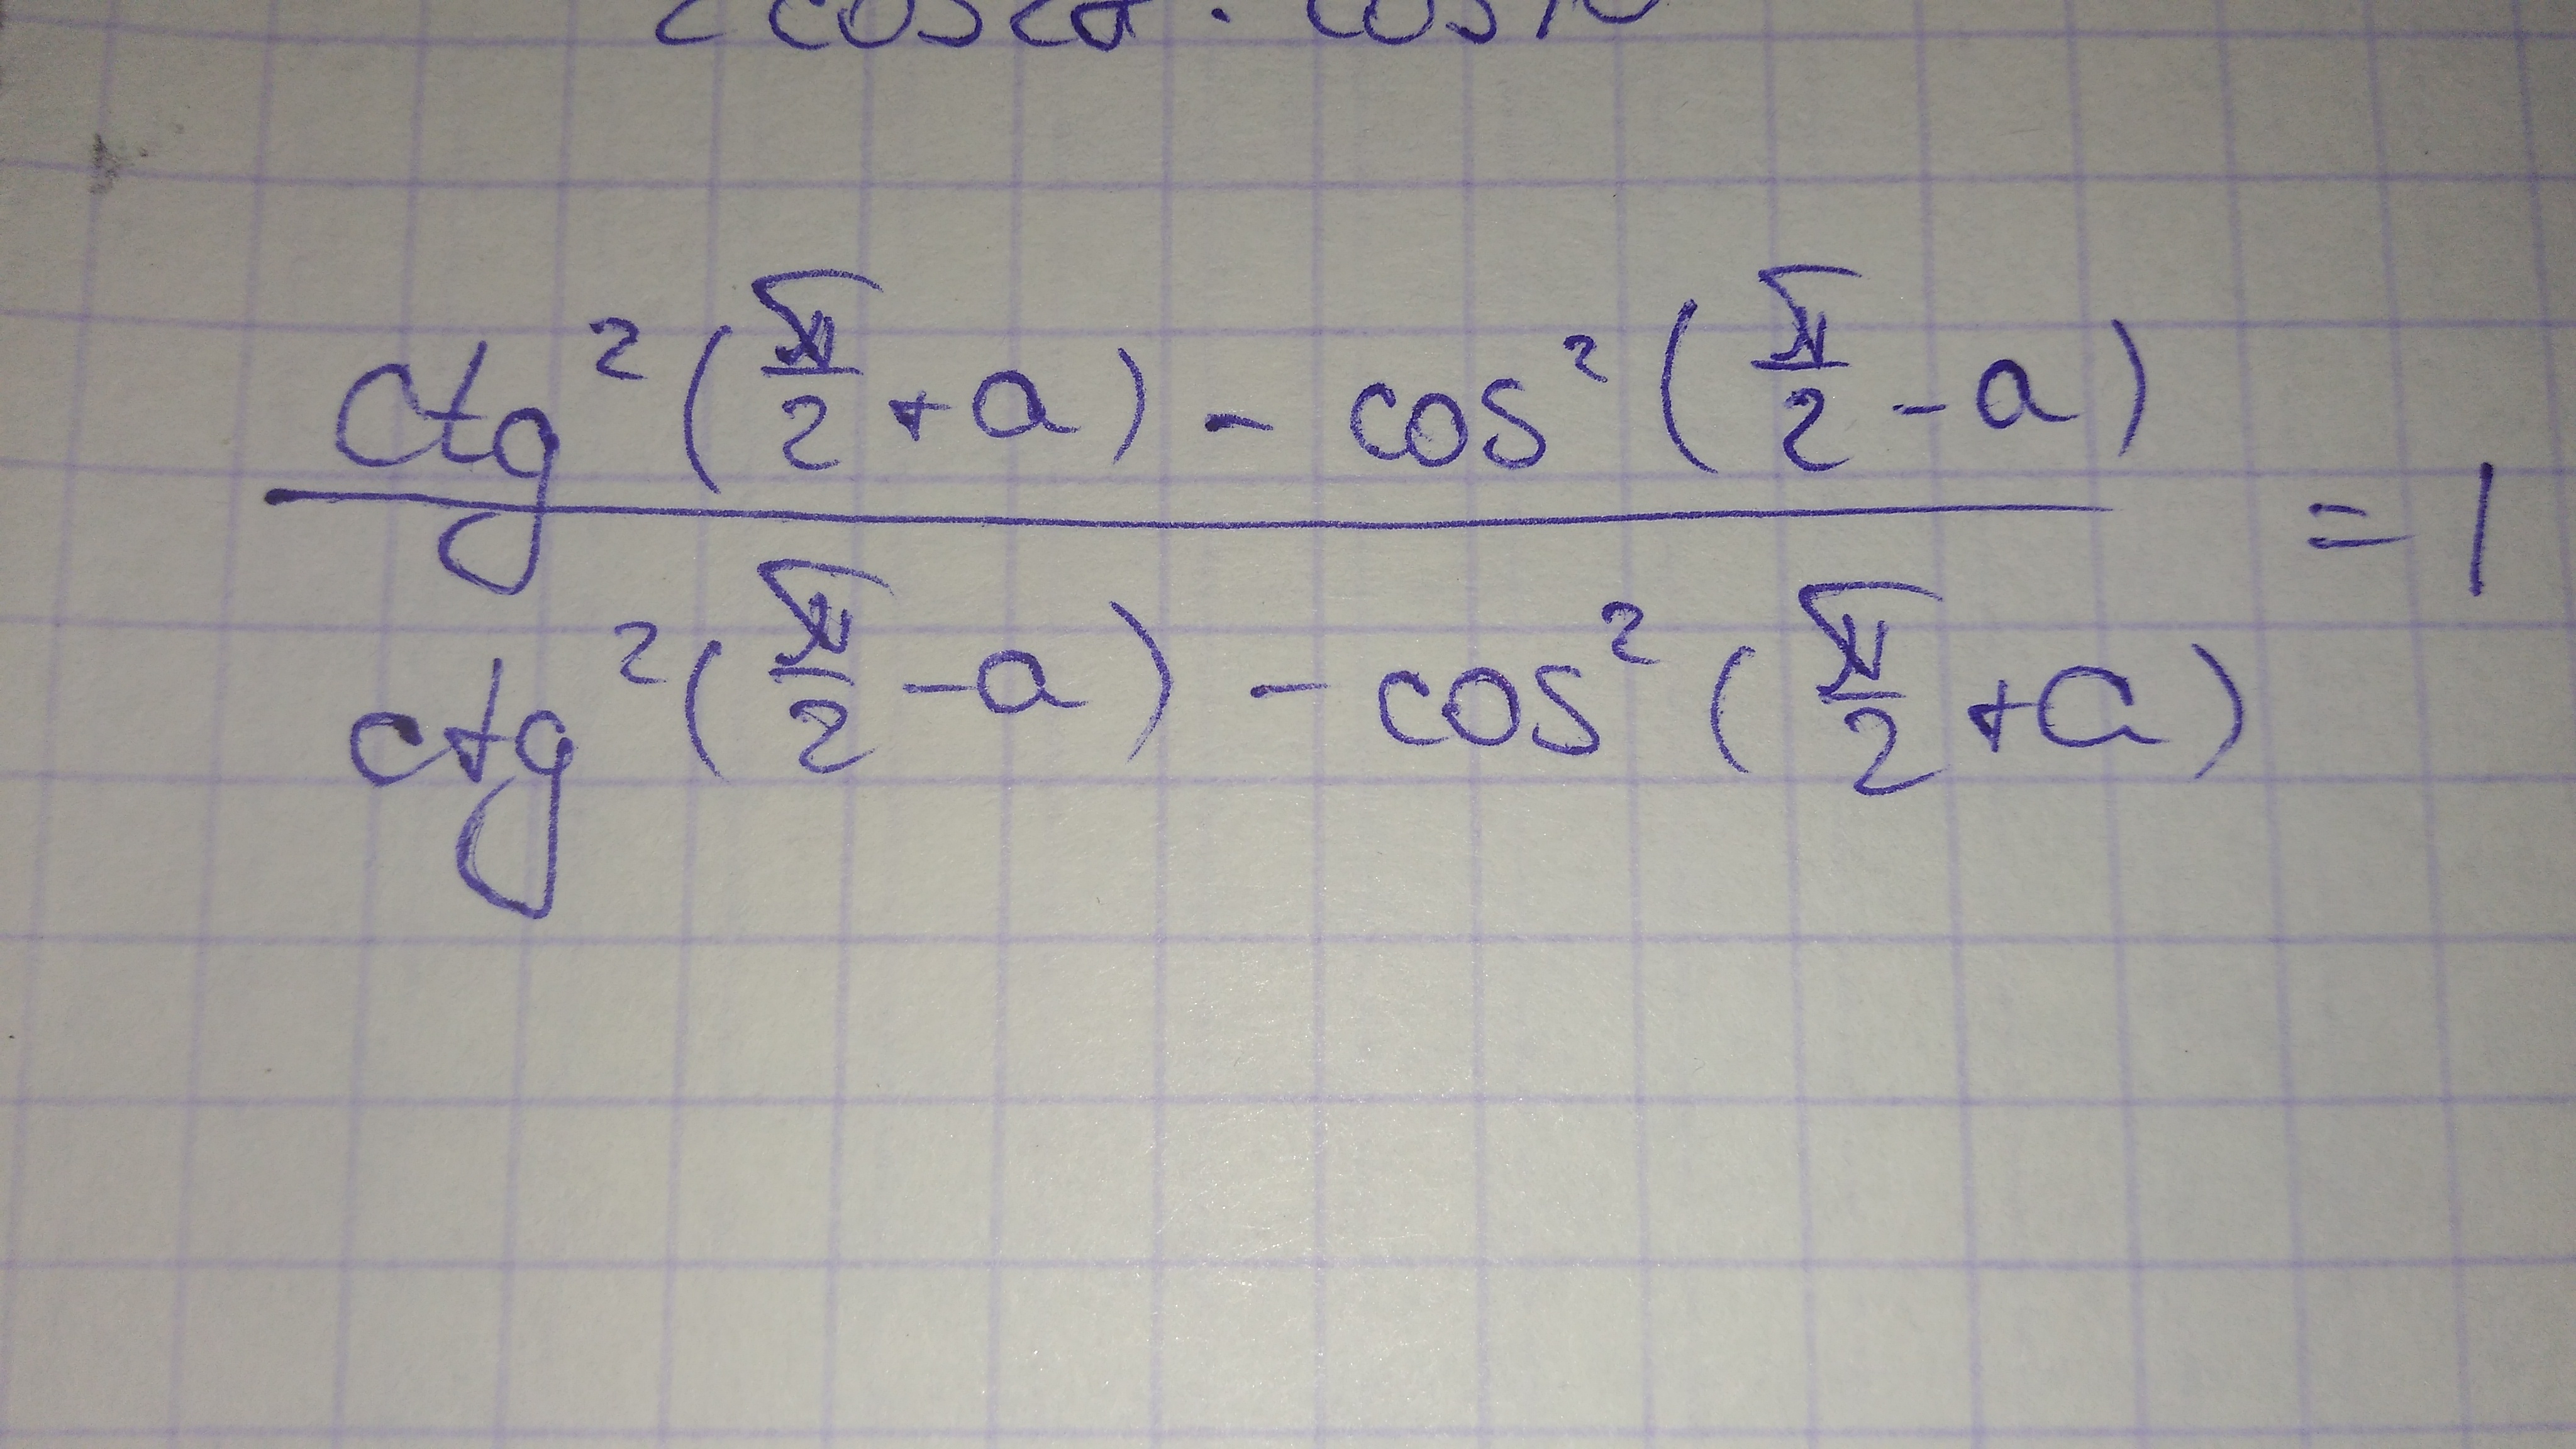 2cos2α · cos
ctg²(π/2 + a) - cos²(π/2 - a)
= 1
ctg²(π/2 - a) - cos²(π/2 + a)